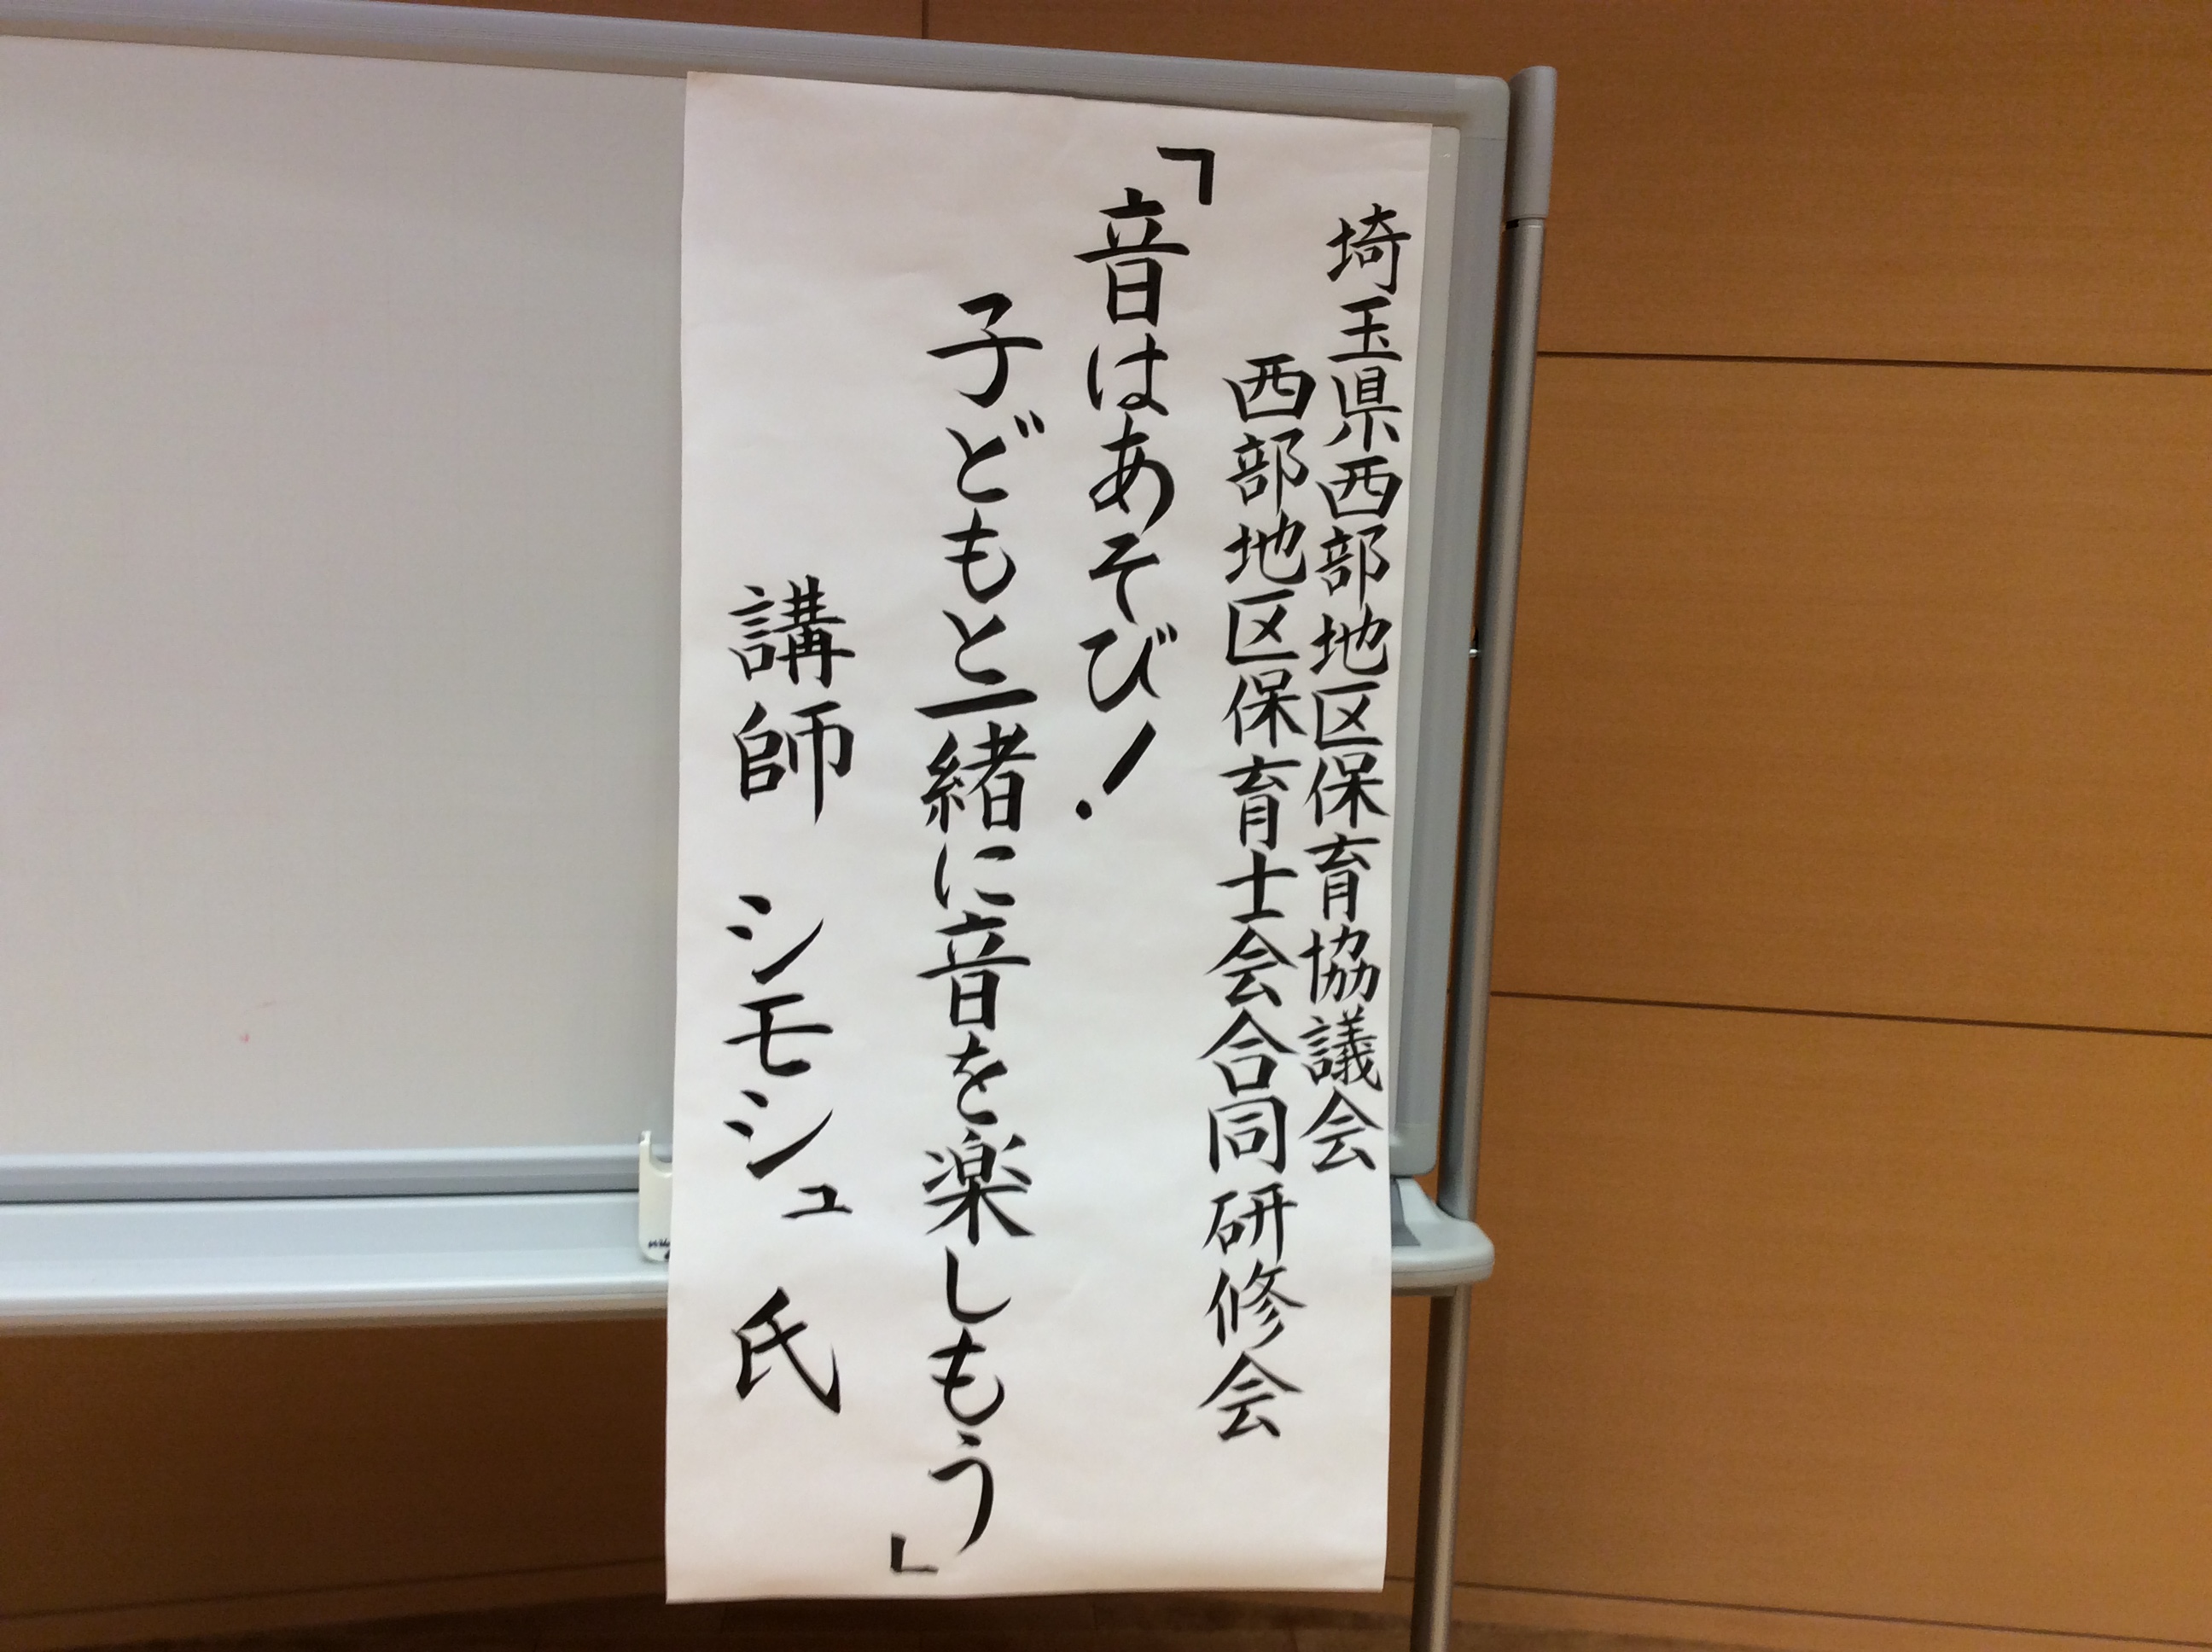 埼玉県西部地区保育協議会
西部地区保育士会合同研修会
「音はあそび！
子どもと一緒に音を楽しもう」
講師　シモシュ　氏